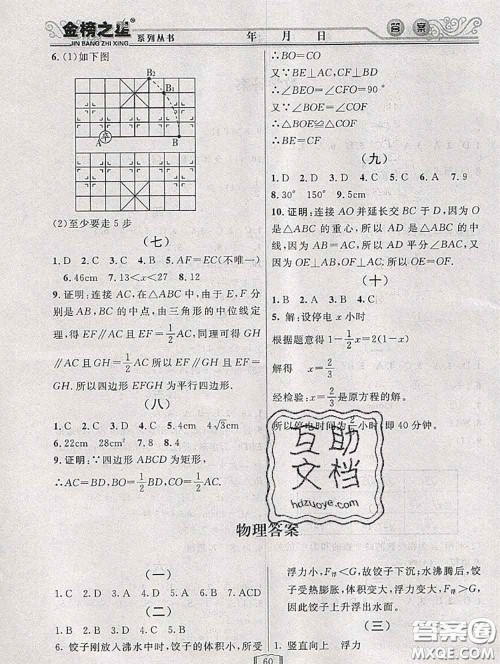 金榜之星 系列丛书
JIN BANG ZHI XING
年 月 日
答案
6. (1)如下图
B₂
B₁
A
B
(2)至少要走 5 步
(七)
1. D 2. C 3. C 4. D 5. AF=EC(不唯一)
6. 46cm 7. 13<x<27 8. 12
9. 证明:连接 AC,在△ABC 中,由于 E,F 分别是 AB,BC 中点,由三角形的中位线定理,得 EF∥AC 且 EF=1/2AC,同理可得 GH∥AC 且 GH=1/2AC,所以 EF∥GH 且 EF=GH.所以四边形 EFGH 为平行四边形.
(八)
1. C 2. C 3. D 4. C 5. 4cm 4√3cm
6. 22cm 28cm² 7. B 8. B
9. 证明:∵四边形 ABCD 为矩形,
∴AC=BD,BO=1/2BD,CO=1/2AC
∴BO=CO
又∵BE⊥AC,CF⊥BD
∴∠BEO=∠CFO=90°
又∵∠BOE=∠COF
∴△BOE≌△COF
∴BE=CF
(九)
1. D 2. D 3. D 4. C 5. C 6. A 7. 9
8. 30° 150° 9. 5cm
10. 证明:连接 AO 并延长交 BC 于 D,因为 O 是△ABC 的重心,所以 AD 是△ABC 的中线,因为 AB=AC,所以 AD 平分∠BAC,又因为 OE⊥AB,OF⊥AC,所以 OE=OF.
(十)
1. B 2. A 3. C 4. B
5. 解:设停电 x 小时
根据题意得 1-1/2x=2(1-x)
解得 x=2/3
经检验:x=2/3是原方程的解.
所以停电时间为2/3小时,即 40 分钟.
互助文档
hdzuoye.com
物理答案
(一)
1. C 2. D 3. D 4. A 5. B 6. ACD
(二)
1. B 2. D 3. A 4. C 5. B
6. 饺子刚放入沸水中时,饺子的体积小,所受
浮力小,F浮<G,故饺子下沉;水沸腾后,饺子因受热膨胀,体积变大,浮力变大,F浮>G,因此饺子上升浮出水面.
(三)
1. 竖直向上 浮力
60
答案圈
MXQE.COM